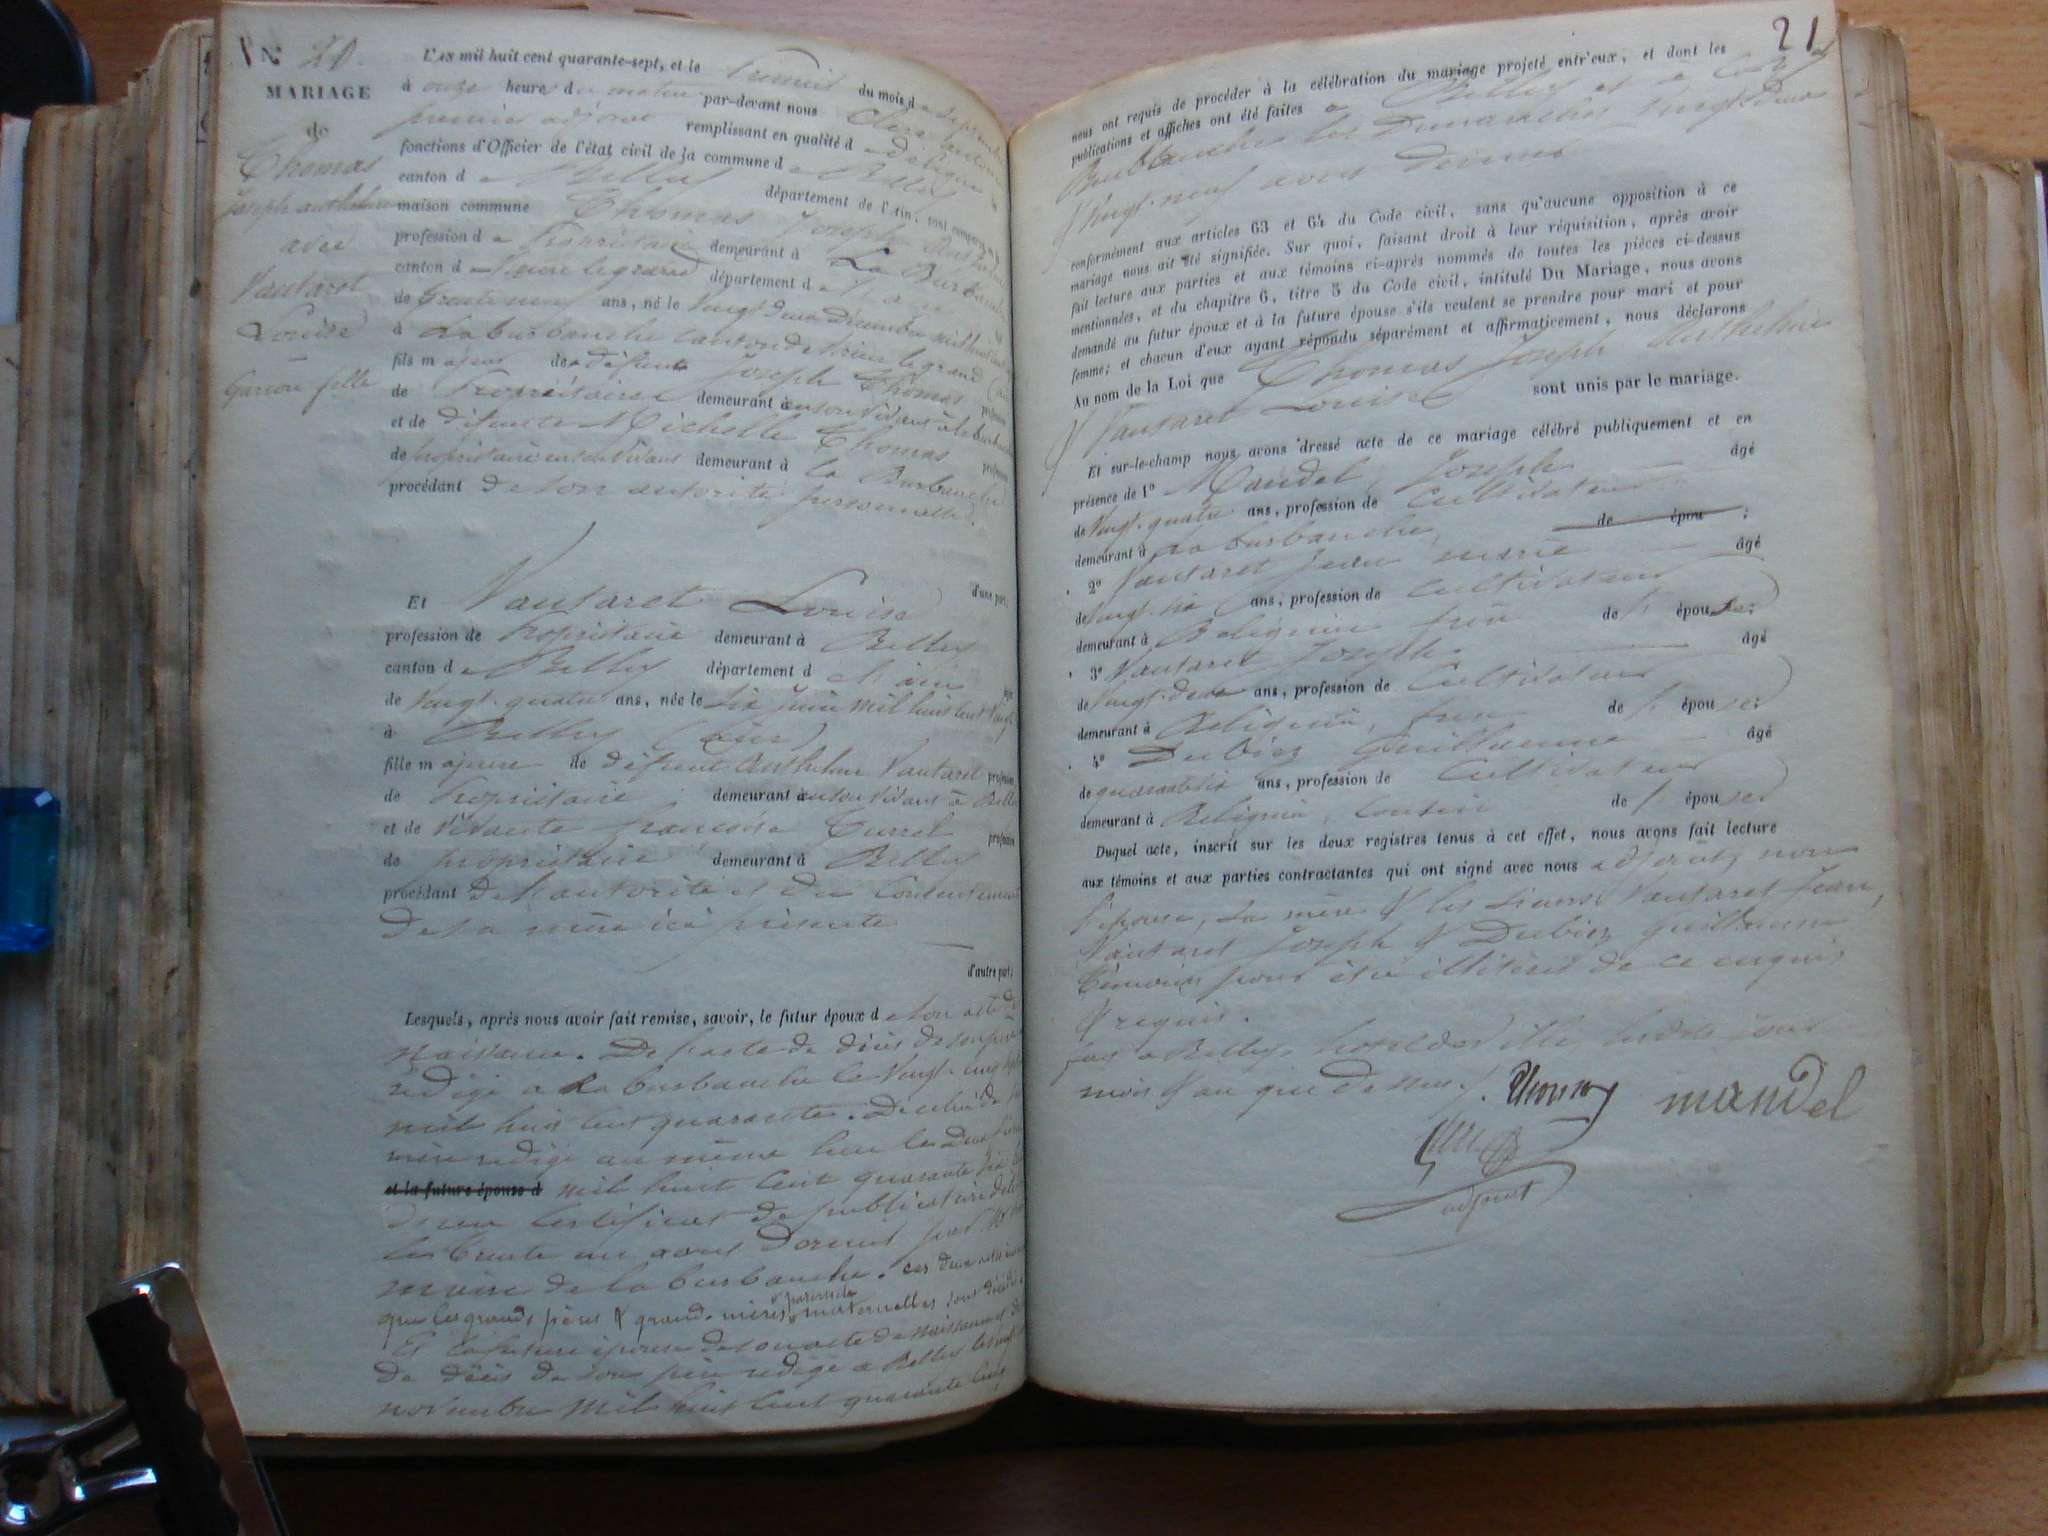 N° 20.
MARIAGE
de
Thomas
Joseph anthelme
avec
Vautaret
Louise
Garçon fille
L'an mil huit cent quarante-sept, et le premier du mois de septembre
à onze heures du matin par-devant nous Clerc antoine
premier adjoint remplissant en qualité de délégué les
fonctions d'Officier de l'état civil de la commune de Belley
canton de Belley département de l'Ain, sont comparus en
maison commune Thomas Joseph Anthelme
profession de Propriétaire demeurant à La Burbanche
canton de Virieu le grand département de l'ain
de trente neuf ans, né le vingt deux décembre mil huit cent
à La burbanche canton de Virieu le grand (ain)
fils majeur de défunt Joseph Thomas profession
de Propriétaire demeurant en son vivant à la burbanche
et de défunte Michelle Thomas profession
de propriétaire en son vivant demeurant à la Burbanche
procédant de son autorité personnelle.
d'une part;
Et Vautaret Louise
profession de propriétaire demeurant à Belley
canton de Belley département de l'ain âgée
de vingt-quatre ans, née le six juin mil huit cent vingt
à Belley (ain)
fille majeure de défunt Anthelme Vautaret profession
de propriétaire demeurant en son vivant à Belley
et de vivante françoise Curret profession
de propriétaire demeurant à Belley
procédant de l'autorité et du consentement
de sa mère ici présente
d'autre part;
Lesquels, après nous avoir fait remise, savoir, le futur époux de son acte de
naissance. De l'acte de décès de son père
rédigé à La burbanche le vingt-cinq
mil huit cent quarante. De celui de sa
mère rédigé au même lieu le deux
et la future épouse d mil huit cent quarante six
d'un certificat de publication
le trente un août dernier par Mr le
maire de la burbanche. ces deux
que les grands pères & grand-mères & paternels maternelles sont décédés
Et la future épouse de son acte de naissance et de
de décès de son père rédigé à Belley le vingt
novembre mil huit cent quarante cinq
21
nous ont requis de procéder à la célébration du mariage projeté entr'eux, et dont les
publications et affiches ont été faites à Belley et à La
Burbanche les Dimanches vingt deux
& vingt-neuf août dernier
conformément aux articles 63 et 64 du Code civil, sans qu'aucune opposition à ce
mariage nous ait été signifiée. Sur quoi, faisant droit à leur réquisition, après avoir
fait lecture aux parties et aux témoins ci-après nommés de toutes les pièces ci-dessus
mentionnées, et du chapitre 6, titre 5 du Code civil, intitulé Du Mariage, nous avons
demandé au futur époux et à la future épouse s'ils veulent se prendre pour mari et pour
femme; et chacun d'eux ayant répondu séparément et affirmativement, nous déclarons
Au nom de la Loi que Thomas Joseph Anthelme
& Vautaret Louise sont unis par le mariage.
Et sur-le-champ nous avons dressé acte de ce mariage célébré publiquement et en
présence de 1° Mandel Joseph âgé
de vingt-quatre ans, profession de cultivateur
demeurant à La burbanche, de épou ;
2° Vautaret Jean marie âgé
de vingt-six ans, profession de cultivateur
demeurant à Belignin frère de l' épouse;
3° Vautaret Joseph âgé
de vingt-deux ans, profession de Cultivateur
demeurant à Belignin, frère de l' épouse;
4° Dubiez Guillaume âgé
de quarante six ans, profession de Cultivateur
demeurant à Belignin, cousin de l' épouse
Duquel acte, inscrit sur les deux registres tenus à cet effet, nous avons fait lecture
aux témoins et aux parties contractantes qui ont signé avec nous adjoint, non
l'épouse, sa mère & les sieurs Vautaret Jean,
Vautaret Joseph & Dubiez guillaume
témoins pour être illitérés de ce enquis
& requis.
fait à Belley, hotel de ville lesdits jour
mois & an que dessus. Thomas mandel
Clerc
adjoint